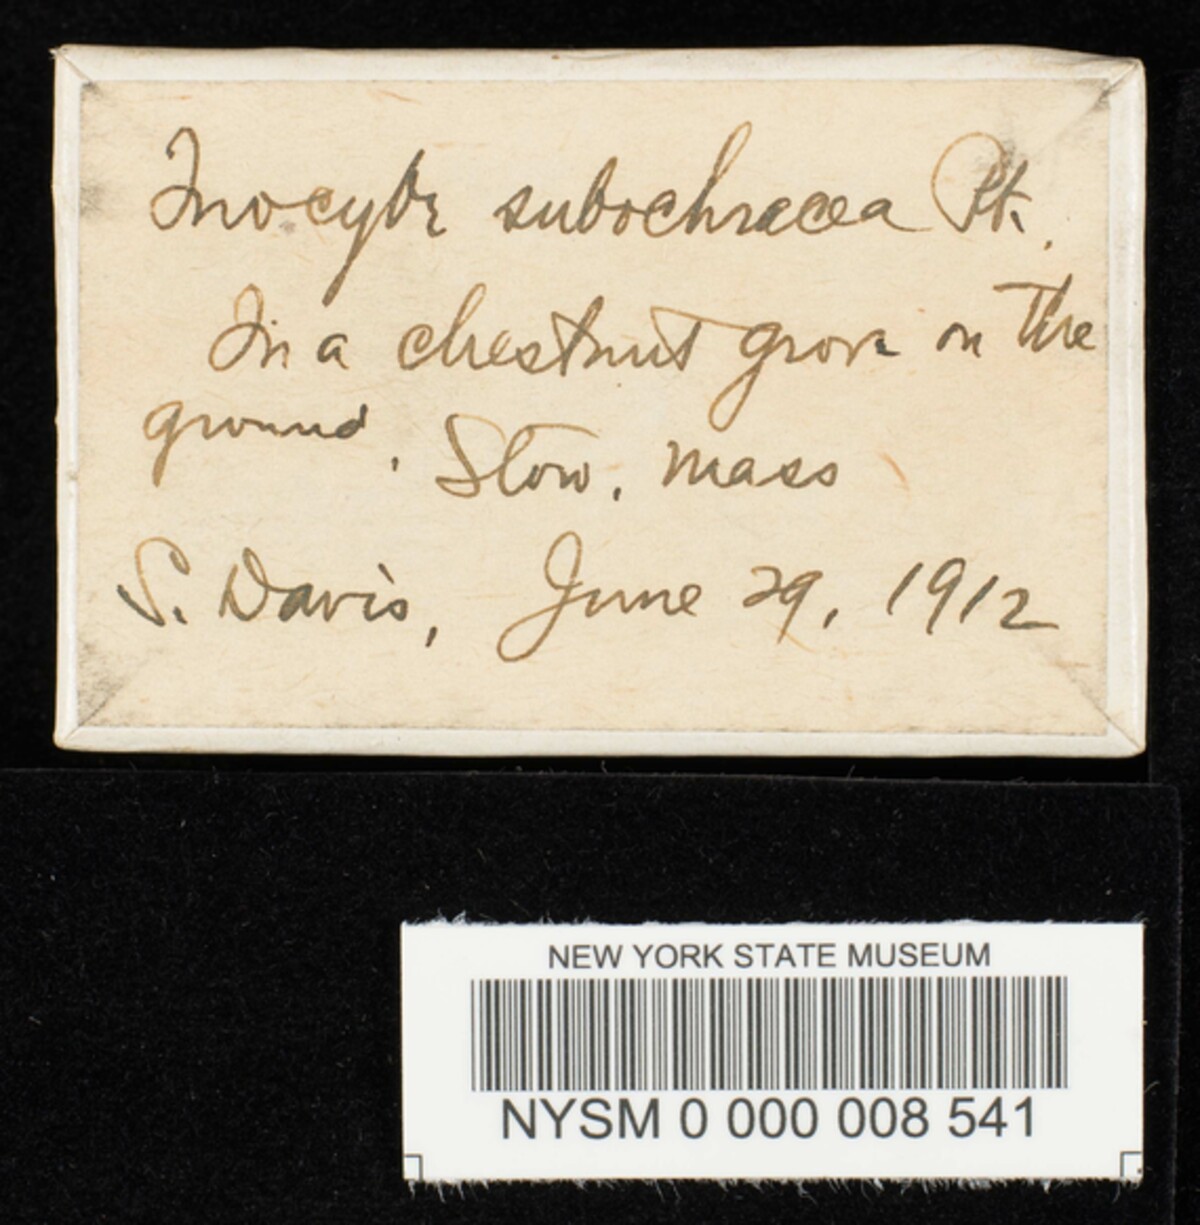 Inocybe subochracea Pk.
In a chestnut grove on the
ground. Stow, Mass
S. Davis, June 29, 1912
NEW YORK STATE MUSEUM
NYSM 0 000 008 541